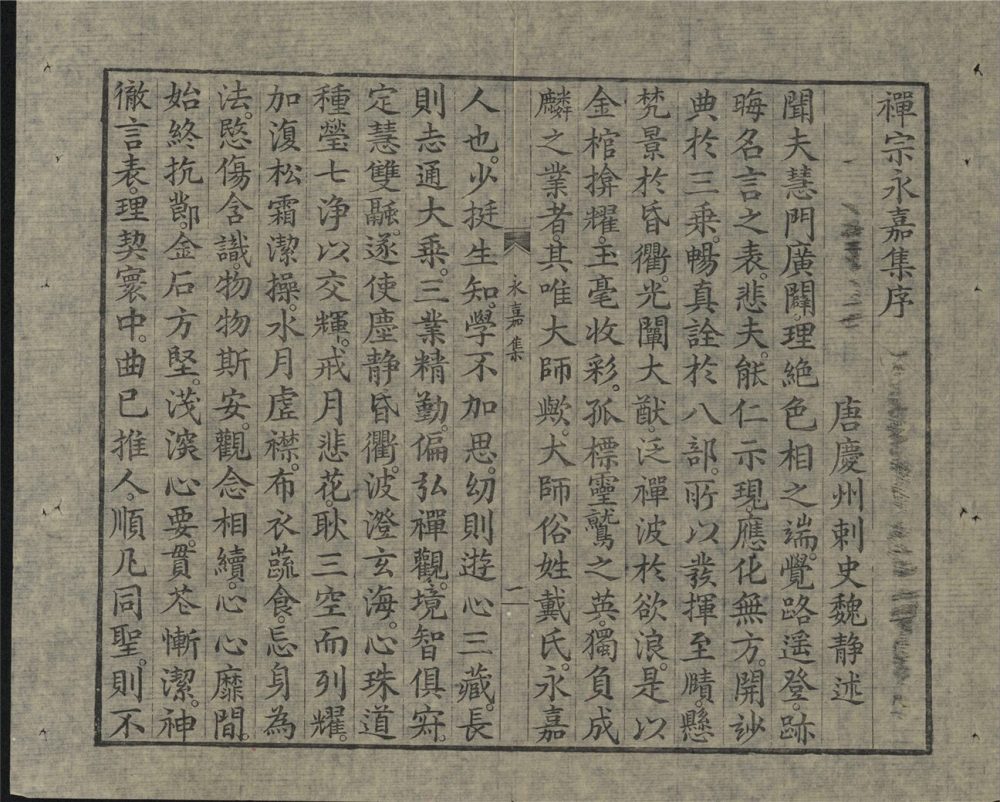 禪宗永嘉集序
唐慶州刺史魏靜述
聞夫慧門廣闢。理絕色相之端。覺路遥登。跡
晦名言之表。悲夫。能仁示現。應化無方。開妙
典於三乘。暢真詮於八部。所以發揮至賾。懸
梵景於昏衢。光闡大猷。泛禪波於欲浪。是以
金棺揜耀。玉毫收彩。孤標靈鷲之英。獨負成
麟之業者。其唯大師歟。大師俗姓戴氏。永嘉
永嘉集 一
人也。少挺生知。學不加思。幼則遊心三藏。長
則志通大乘。三業精勤。偏弘禪觀。境智俱寂。
定慧雙融。遂使塵静昏衢。波澄玄海。心珠道
種瑩七浄以交輝。戒月悲花。耿三空而列耀。
加復松霜潔操。水月虛襟。布衣蔬食。忘身為
法。愍傷含識。物物斯安。觀念相續。心心靡間。
始終抗節。金石方堅。淺深心要。貫花慚潔。神
徹言表。理契寰中。曲已推人。順凡同聖。則不